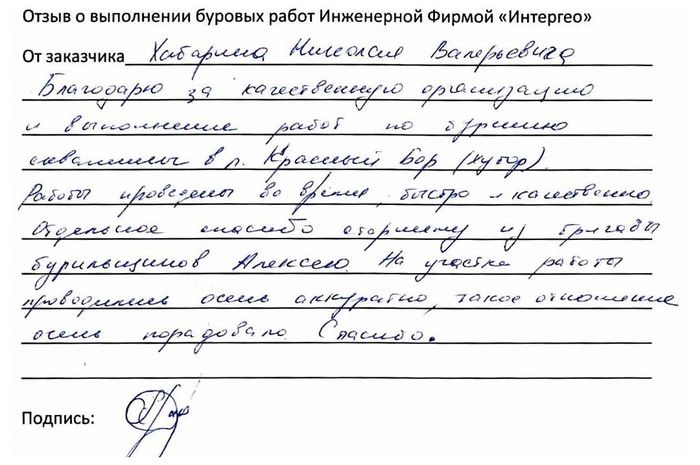 Отзыв о выполнении буровых работ Инженерной Фирмой «Интергео»
От заказчика Хабарина Николая Валерьевича
Благодарю за качественную организацию
и выполнение работ по бурению
скважины в п. Красный Бор (хутор).
Работы проведены во время, быстро и качественно.
Отдельное спасибо старшему из бригады
бурильщиков Алексею. На участке работы
проводились очень аккуратно, такое отношение
очень порадовало. Спасибо.
Подпись: